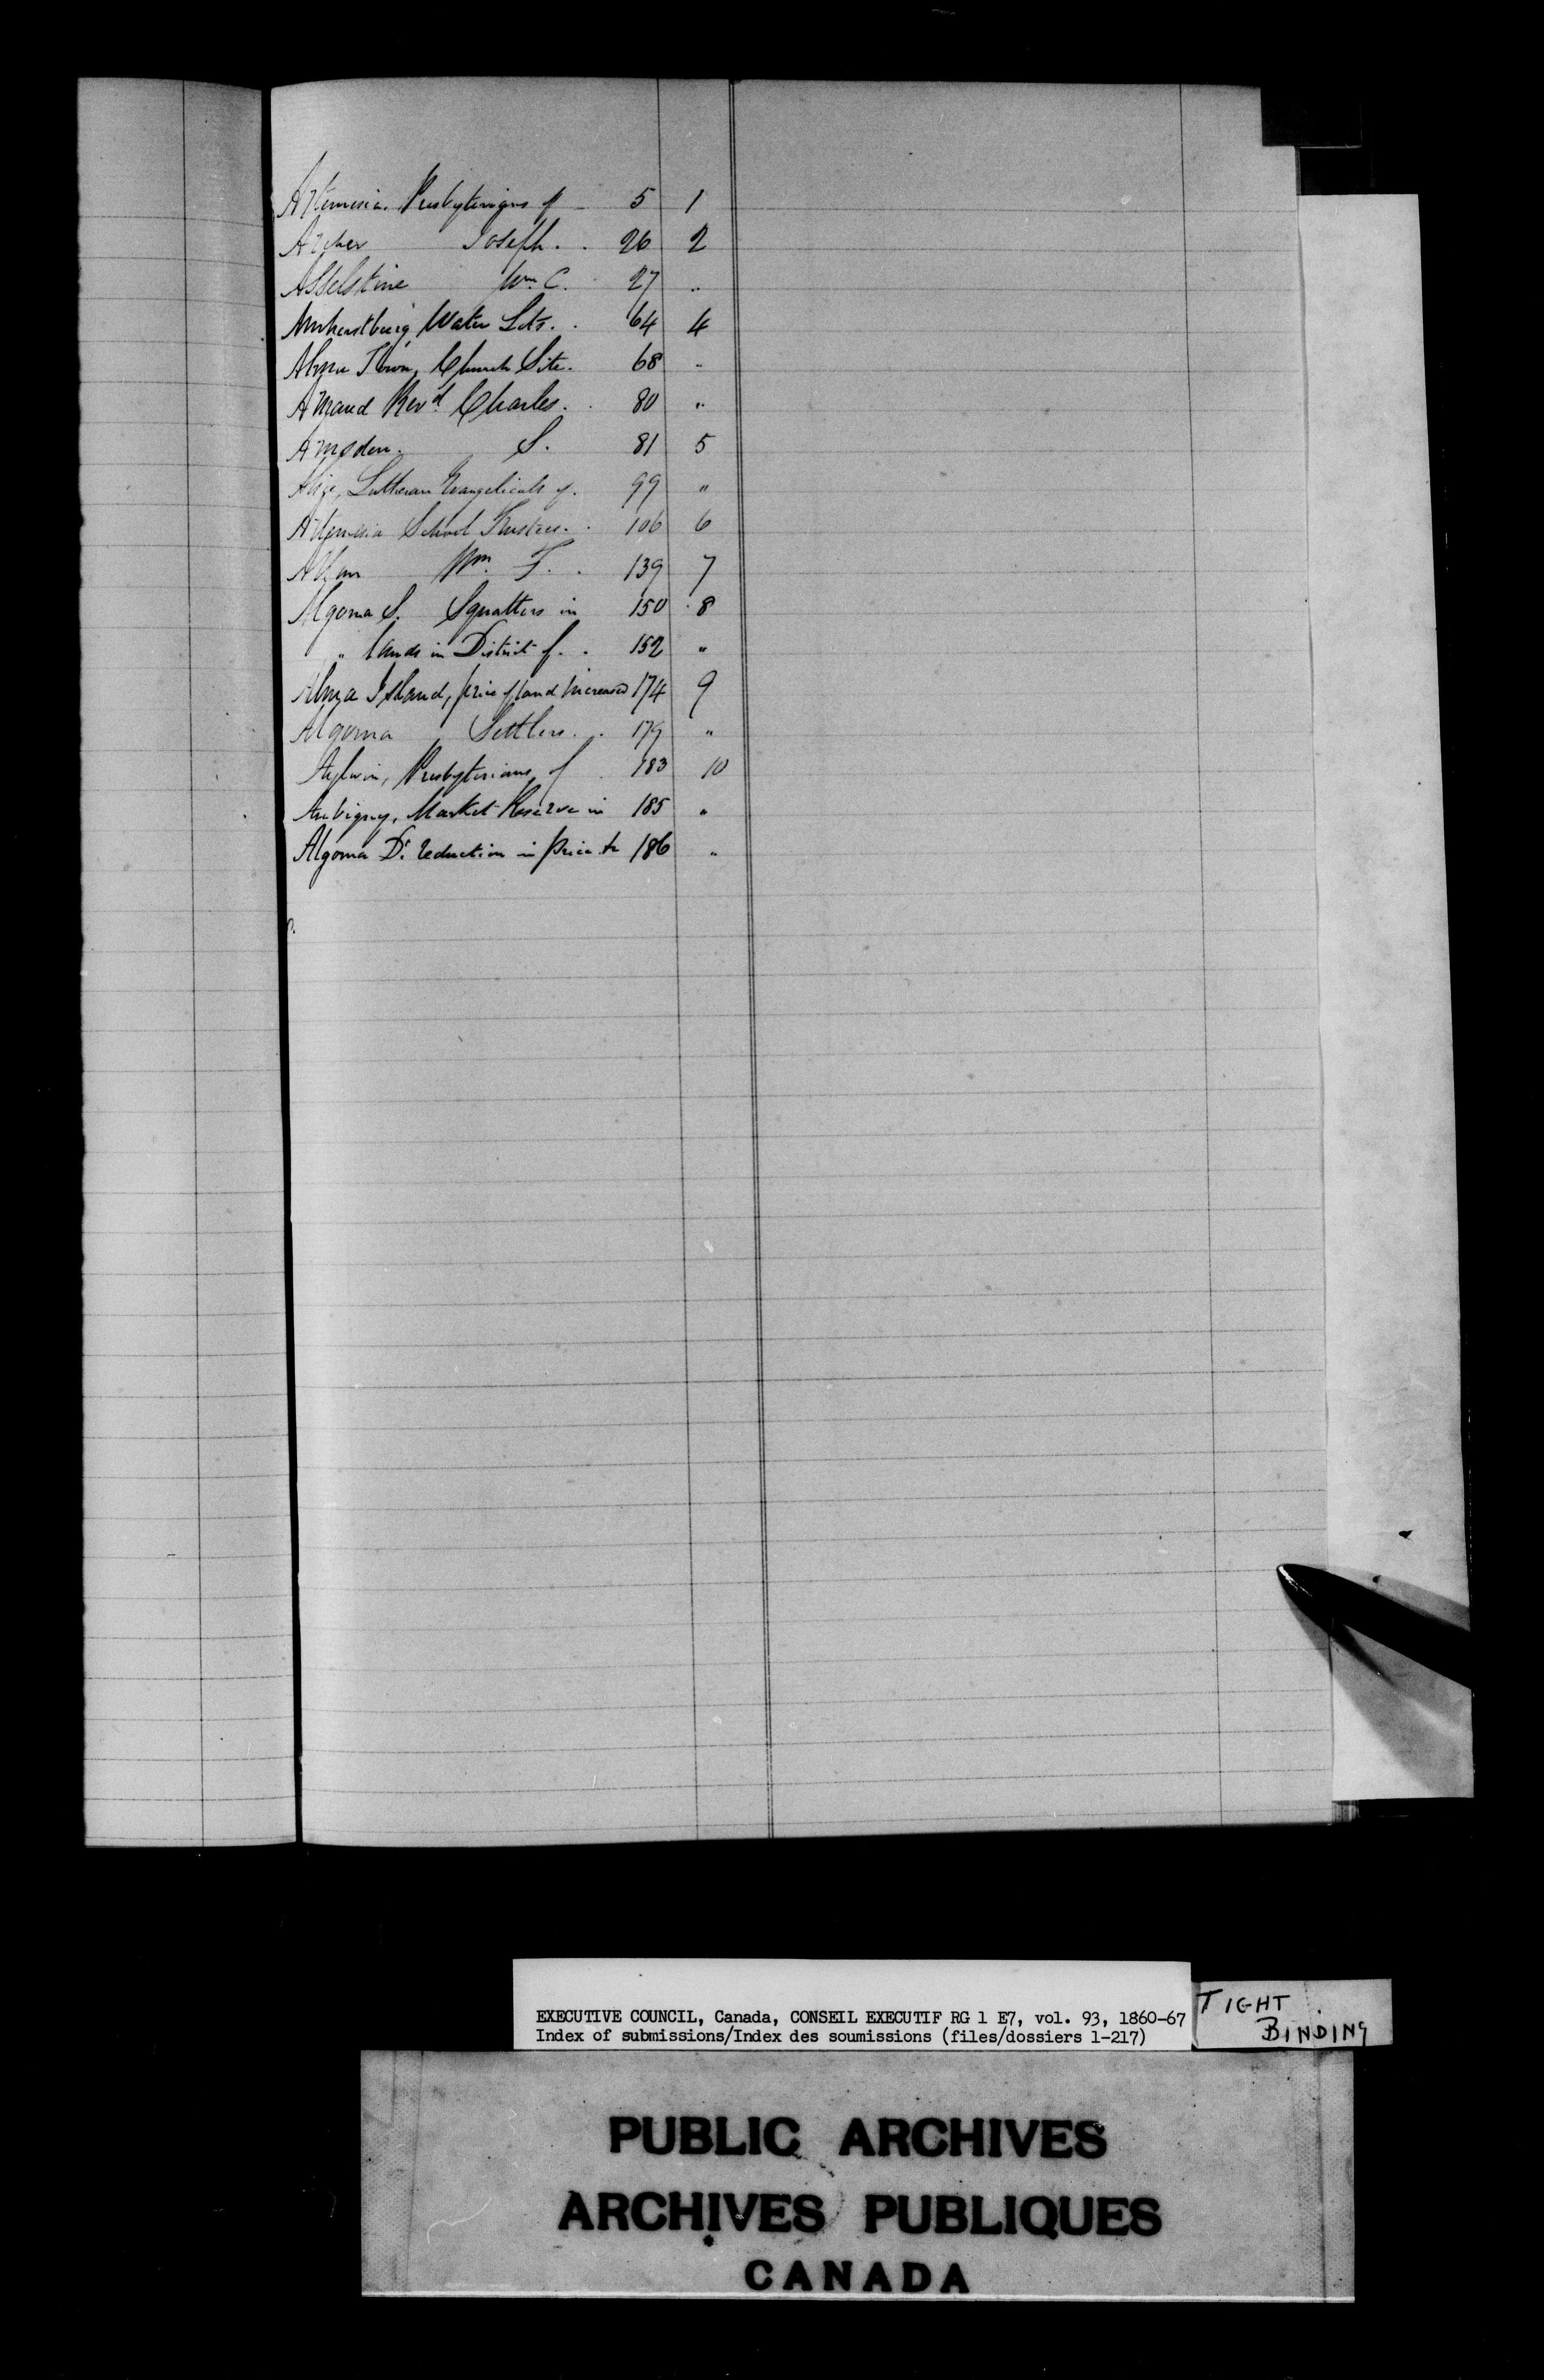 Artemesia. Presbyterians of 5 1
Archer Joseph. . 26 2
Asselstine Wm. C. 27 "
Amherstburg Water Lots. . 64 4
Alma Town, Church Site. 68 "
Rev'd. Charles. . 80 "
Amsden. S. 81 5
Lutheran Evangelicals of. 99 "
Artemesia School Trustees. . 106 6
Allan Wm. F. . 139 7
Algoma S. Squatters in 150 8
" Lands in District of. . 152 "
Alma Island, price of land increased 174 9
Algoma Settlers. . 179 "
Aylwin, Presbyterians of 183 10
Aubigny, Market Reserve in 185 "
Algoma Dt. reduction in price to 186 "
EXECUTIVE COUNCIL, Canada, CONSEIL EXECUTIF RG 1 E7, vol. 93, 1860-67
Index of submissions/Index des soumissions (files/dossiers 1-217)
TIGHT
BINDING
PUBLIC ARCHIVES
ARCHIVES PUBLIQUES
CANADA